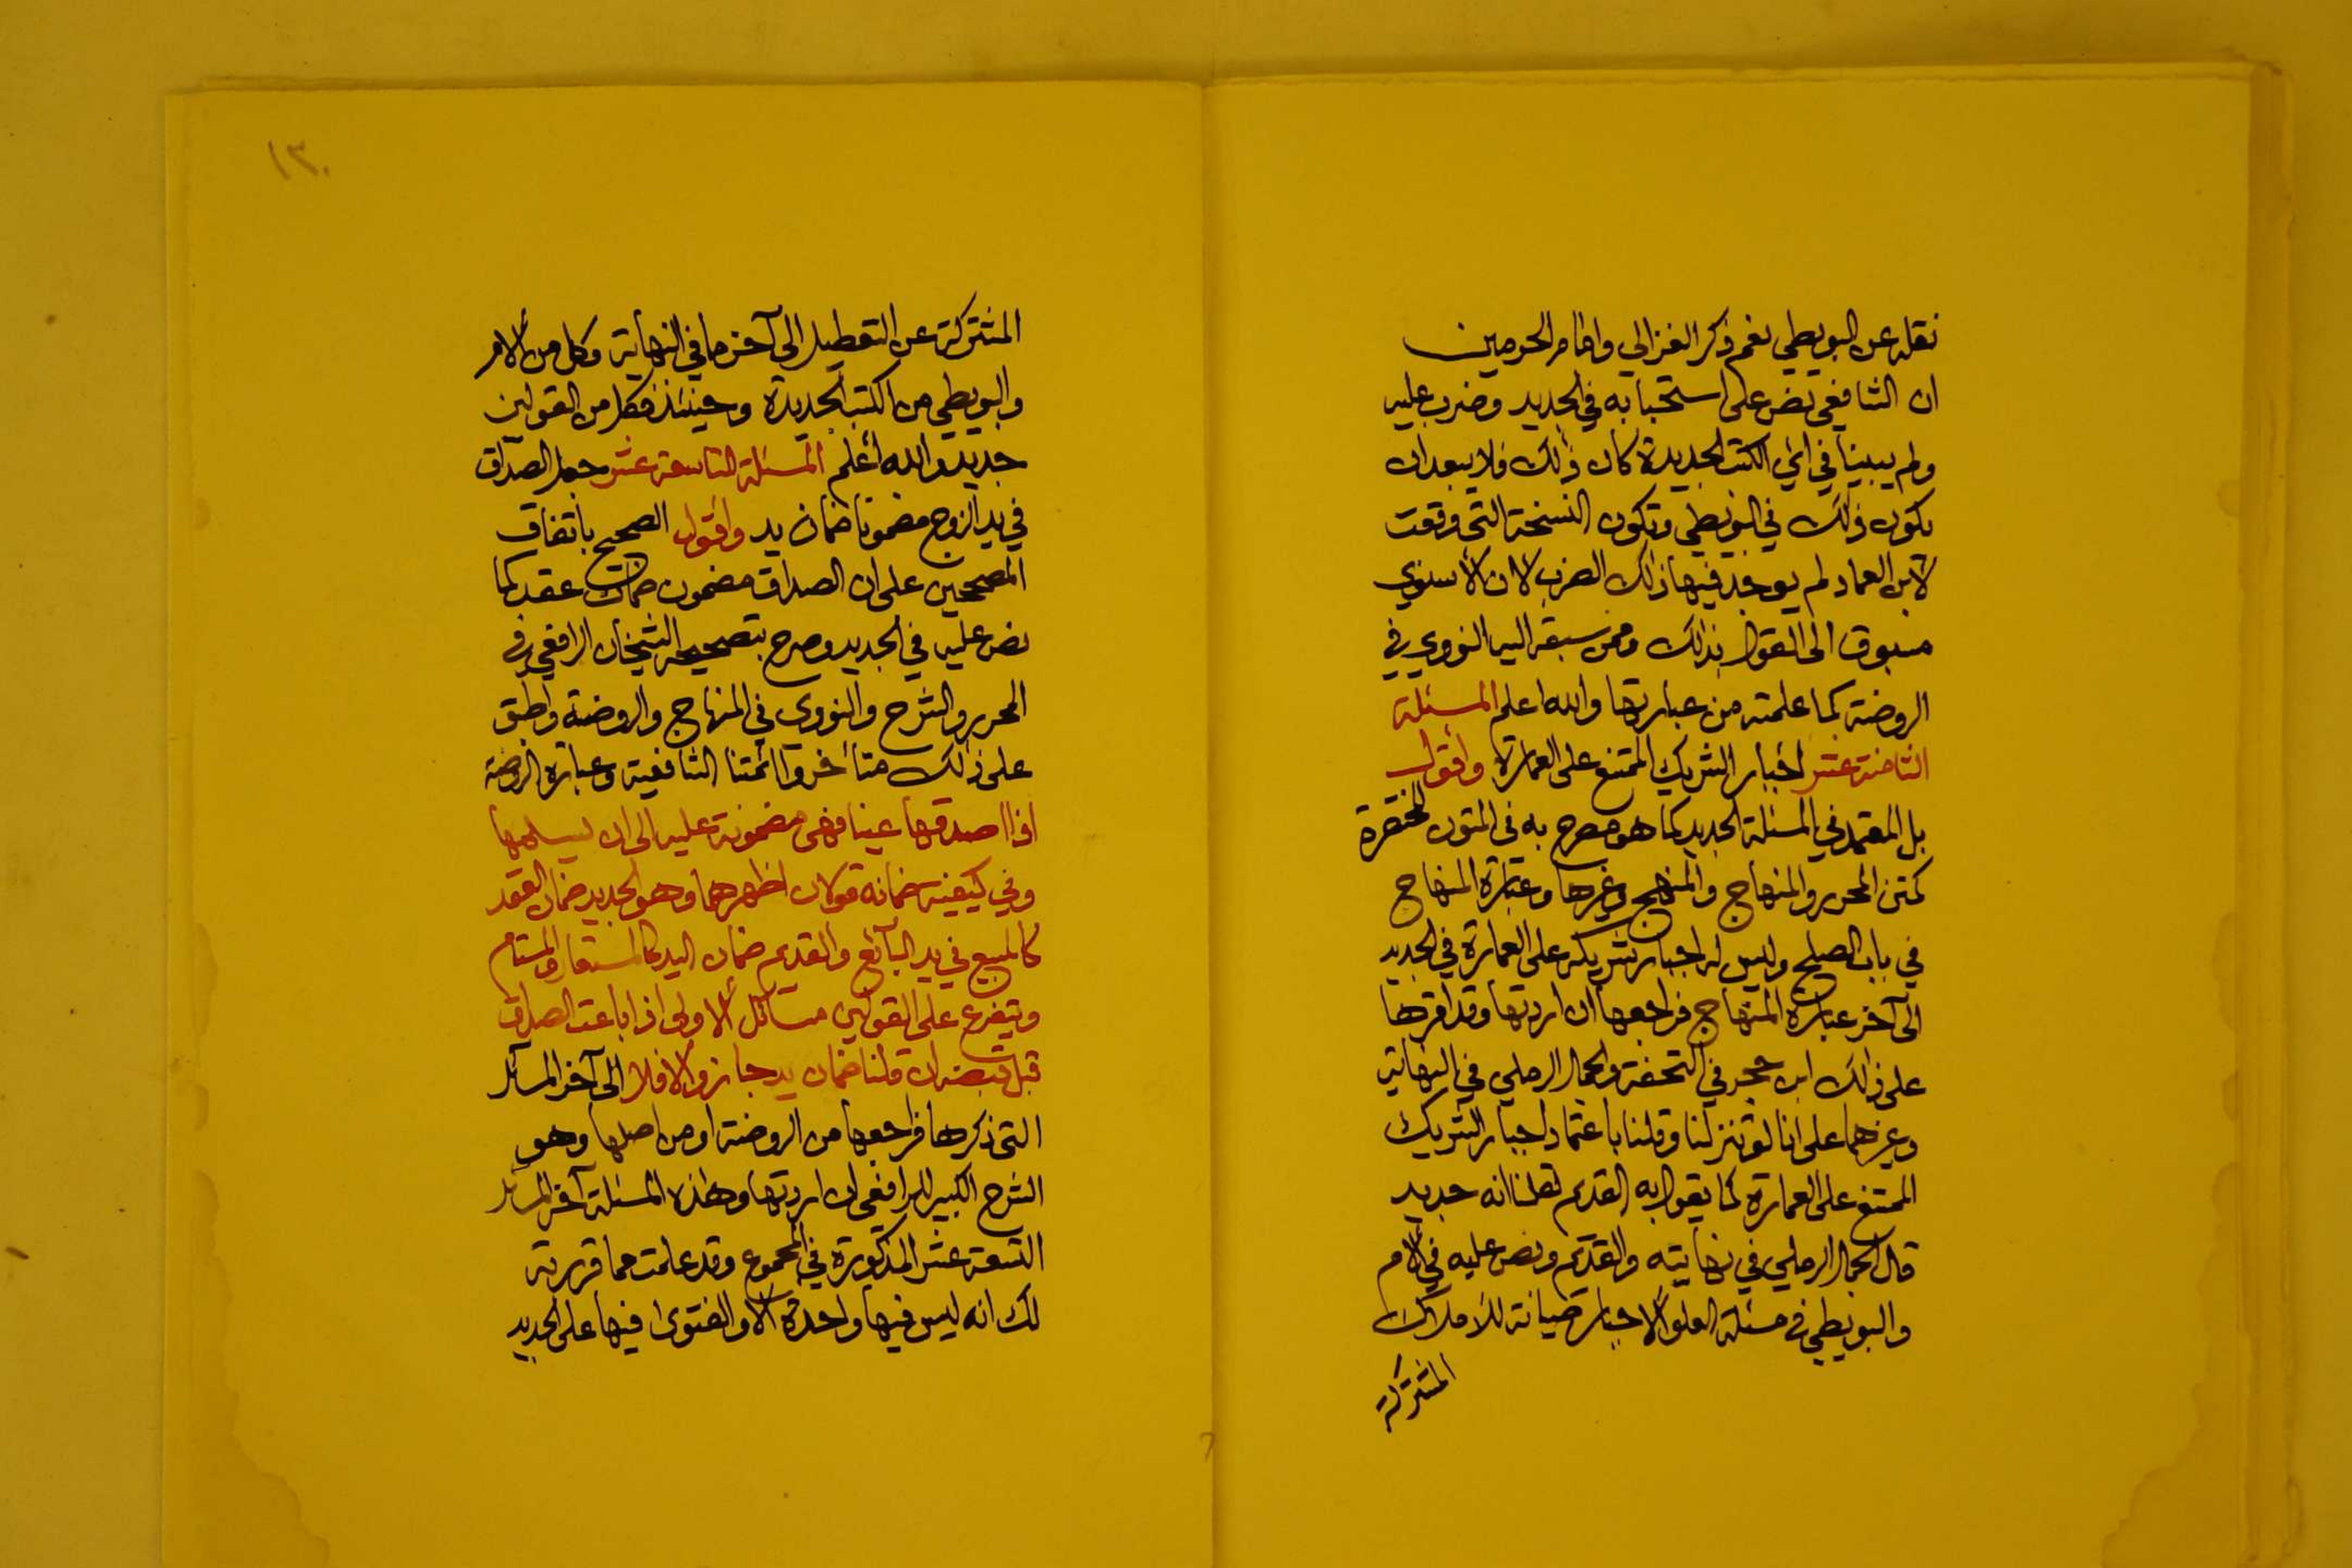 نقله عن البويطي نعم ذكر الغزالي وامام الحرمين
ان الشافعي نص على استحبابه في الجديد وضرب عليه
ولم يبينا في اي الكتب الجديدة كان ذلك فلا يبعد ان
يكون ذلك في البويطي وتكون النسخة التي وقعت
لابن العماد لم يوجد فيها ذلك الضرب لان الأسنوي
مسبوق الى القول بذلك وممن سبقه اليه النووي في
الروضة كما علمته من عبارتها والله اعلم المسئلة
الثامنة عشر اجبار الشريك الممتنع على العمارة واقول
بل المعتمد في المسئلة الجديد كما هو مصرح به في المتون المختصرة
كمتن المحرر والمنهاج والمنهج وغيرها وعبارة المنهاج
في باب الصلح وليس له اجبار شريكه على العمارة في الجديد
الى آخر عبارة المنهاج فراجعها ان اردتها وقد اقرها
على ذلك ابن حجر في التحفة والجمال الرملي في النهاية
وغيرهما على انا لو تنزلنا وقلنا باعتماد اجبار الشريك
الممتنع على العمارة كما يقول به القديم لقلنا انه جديد
قال الجمال الرملي في نهايته والقديم ونص عليه في الأم
والبويطي في مسئلة العلو الاجبار صيانة للأملاك
المشتركة
١٣٠
المشتركة عن التعطيل الى آخر ما في النهاية وكل من الأم
والبويطي من الكتب الجديدة وحينئذ فكل من القولين
جديد والله أعلم المسئلة التاسعة عشر جعل الصداق
في يد الزوج مضمونا ضمان يد واقول الصحيح باتفاق
المصححين على ان الصداق مضمون ضمان عقد كما
نص عليه في الجديد وصرح بتصحيحه الشيخان الرافعي في
المحرر والشرح والنووي في المنهاج والروضة واطبق
على ذلك متأخروا ائمتنا الشافعية وعبارة الروضة
اذا اصدقها عينا فهي مضمونة عليه الى ان يسلمها
وفي كيفية ضمانه قولان اظهرهما وهو الجديد ضمان العقد
كالمبيع في يد البائع والقديم ضمان اليد كالمستعار والمستام
ويتفرع على القولين مسائل الاولى اذا باعت الصداق
قبل قبضه ان قلنا ضمان يد جاز والا فلا الى آخر المسائل
التي ذكرها فراجعها من الروضة او من اصلها وهو
الشرح الكبير للرافعي ان اردتها وهذه المسئلة آخر المسائل
التسعة عشر المذكورة في المجموع وقد علمت مما قررته
لك انه ليس فيها واحدة الا والفتوى فيها على الجديد